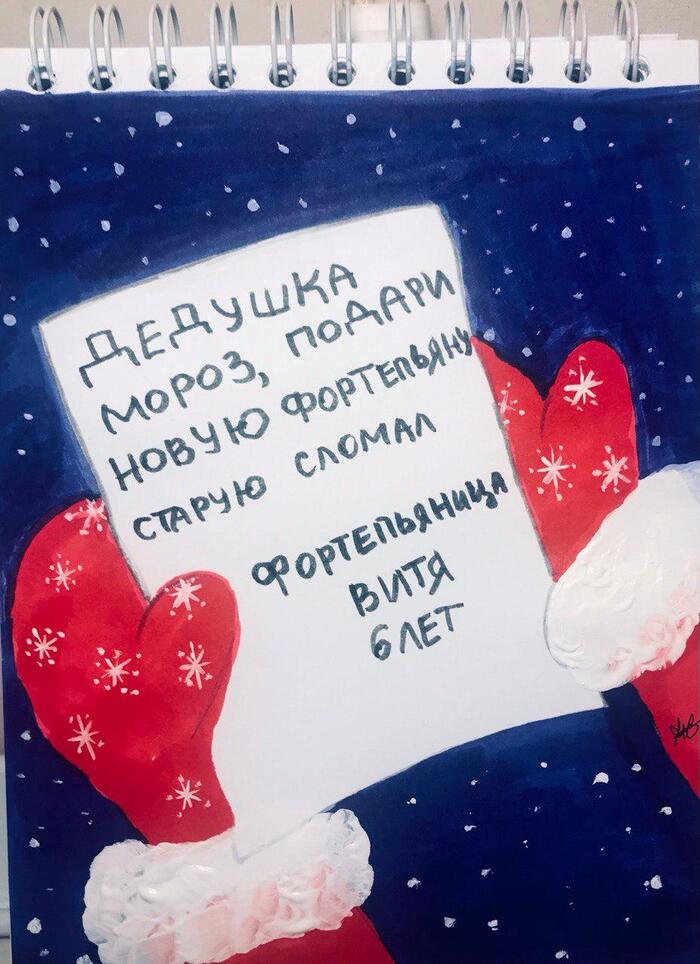 ДЕДУШКА
МОРОЗ, ПОДАРИ
НОВУЮ ФОРТЕПЬЯНУ
СТАРУЮ СЛОМАЛ
ФОРТЕПЬЯНИЦА
ВИТЯ
6 ЛЕТ